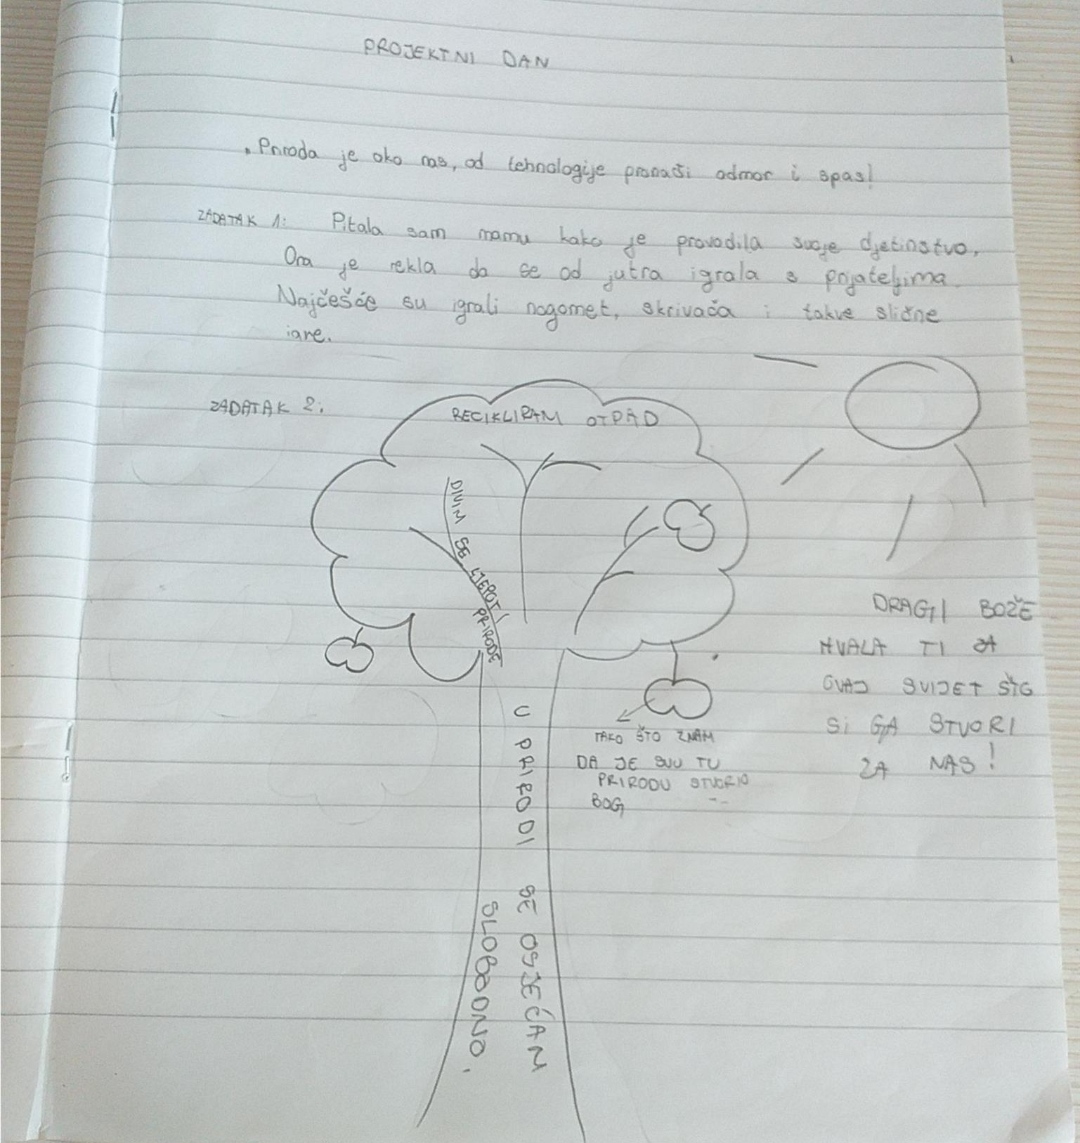 PROJEKTNI DAN
. Priroda je oko nas, od tehnologije pronađi odmor i spas!
ZADATAK 1: Pitala sam mamu kako je provodila svoje djetinstvo.
Ona je rekla da se od jutra igrala s prijateljima.
Najčešće su igrali nogomet, skrivača i takve slične
igre.
ZADATAK 2.
RECIKLIRAM OTPAD
DIVIM SE LJEPOTI PRIRODE
U PRIRODI SE OSJEĆAM
SLOBODNO.
TAKO ŠTO ZNAM
DA JE SVU TU
PRIRODU STVORIO
BOG
DRAGI BOŽE
HVALA TI ZA
OVAJ SVIJET ŠTO
SI GA STVORI
ZA NAS!